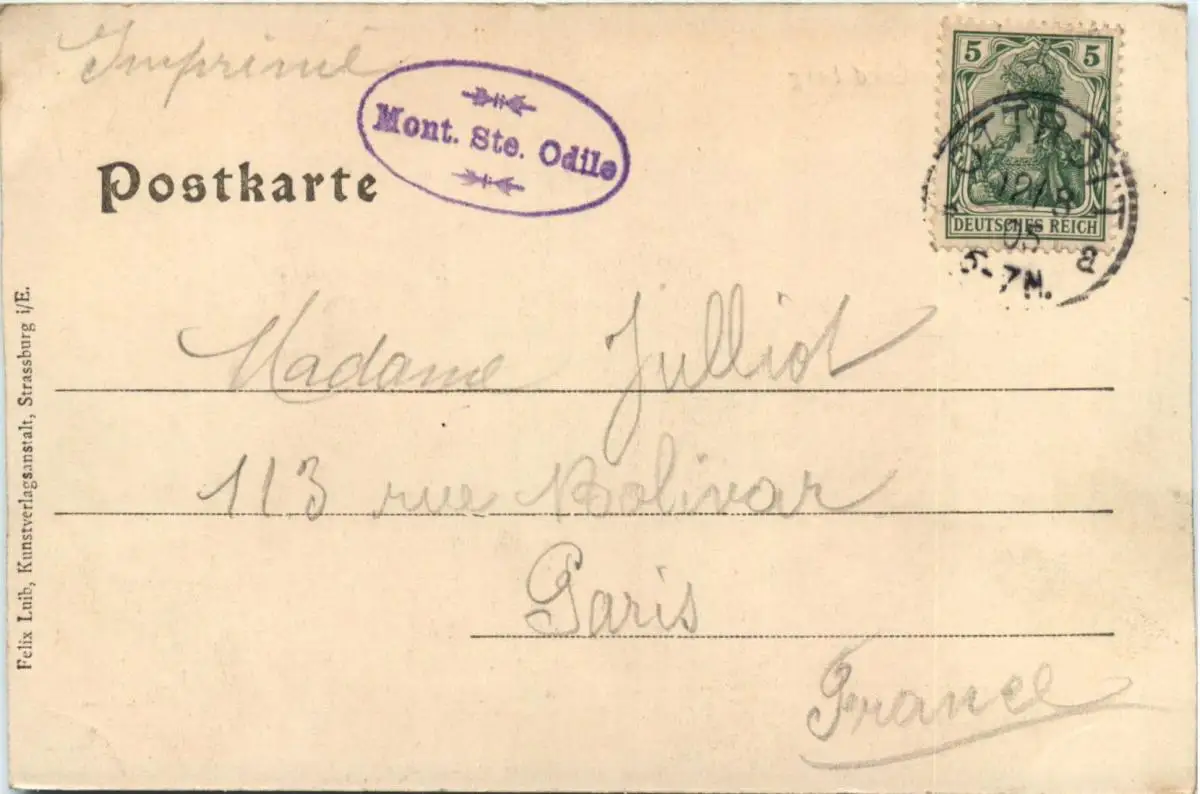 Imprimé
Mont. Ste. Odile
Postkarte
5 5
DEUTSCHES REICH
OTTROTT
12/8
05
6-7N.
a
Madame Julliot
113 rue Bolivar
Paris
France
Felix Luib, Kunstverlagsanstalt, Strassburg i/E.